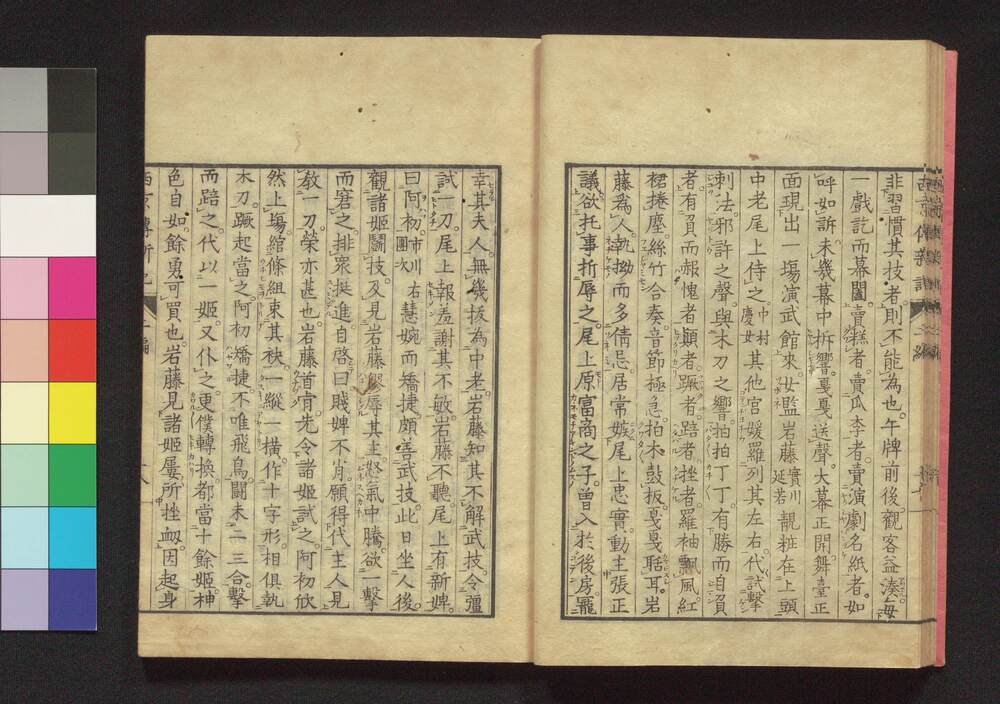 非習慣其技者則不能為也午牌前後觀客益湊每
一戲訖而幕闔賣糕者賣瓜李者賣演劇名紙者如
呼如訴未幾幕中柝響戛戛送聲大幕正開舞臺正
面現出一塲演武館來女監岩藤實川延若靚粧在上頭
中老尾上侍之中村慶女其他官媛羅列其左右代試擊
刺法邪許之聲與木刀之響拍拍丁丁有勝而自負
者有負而赧愧者顛者蹶者踣者挫者羅袖飄風紅
裙捲塵絲竹合奏音節極急拍木鼓板戛戛聒耳岩
藤為人執拗而多倩忌居常嫉尾上忠實動主張正
議欲托事折辱之尾上原富商之子曾入於後房寵
幸其夫人無幾拔為中老岩藤知其不解武技令彊
試一刀尾上報羞謝其不敏岩藤不聽尾上有新婢
曰阿初市川右團次慧婉而矯捷頗善武技此日坐人後
觀諸姬鬪技及見岩藤僇辱其主怒氣中騰欲一擊
而窘之排衆挺進自啓曰賤婢不肖願得代主人見
敎一刀榮亦甚也岩藤道肯先令諸姬試之阿初欣
然上塲綰絛組束其袂一縱一橫作十字形相俱執
木刀蹶起當之阿初矯捷不唯飛鳥鬪未二三合擊
而踣之代以一姬又仆之更僕轉換都當十餘姬神
色自如餘勇可買也岩藤見諸姬屢所挫衂因起身